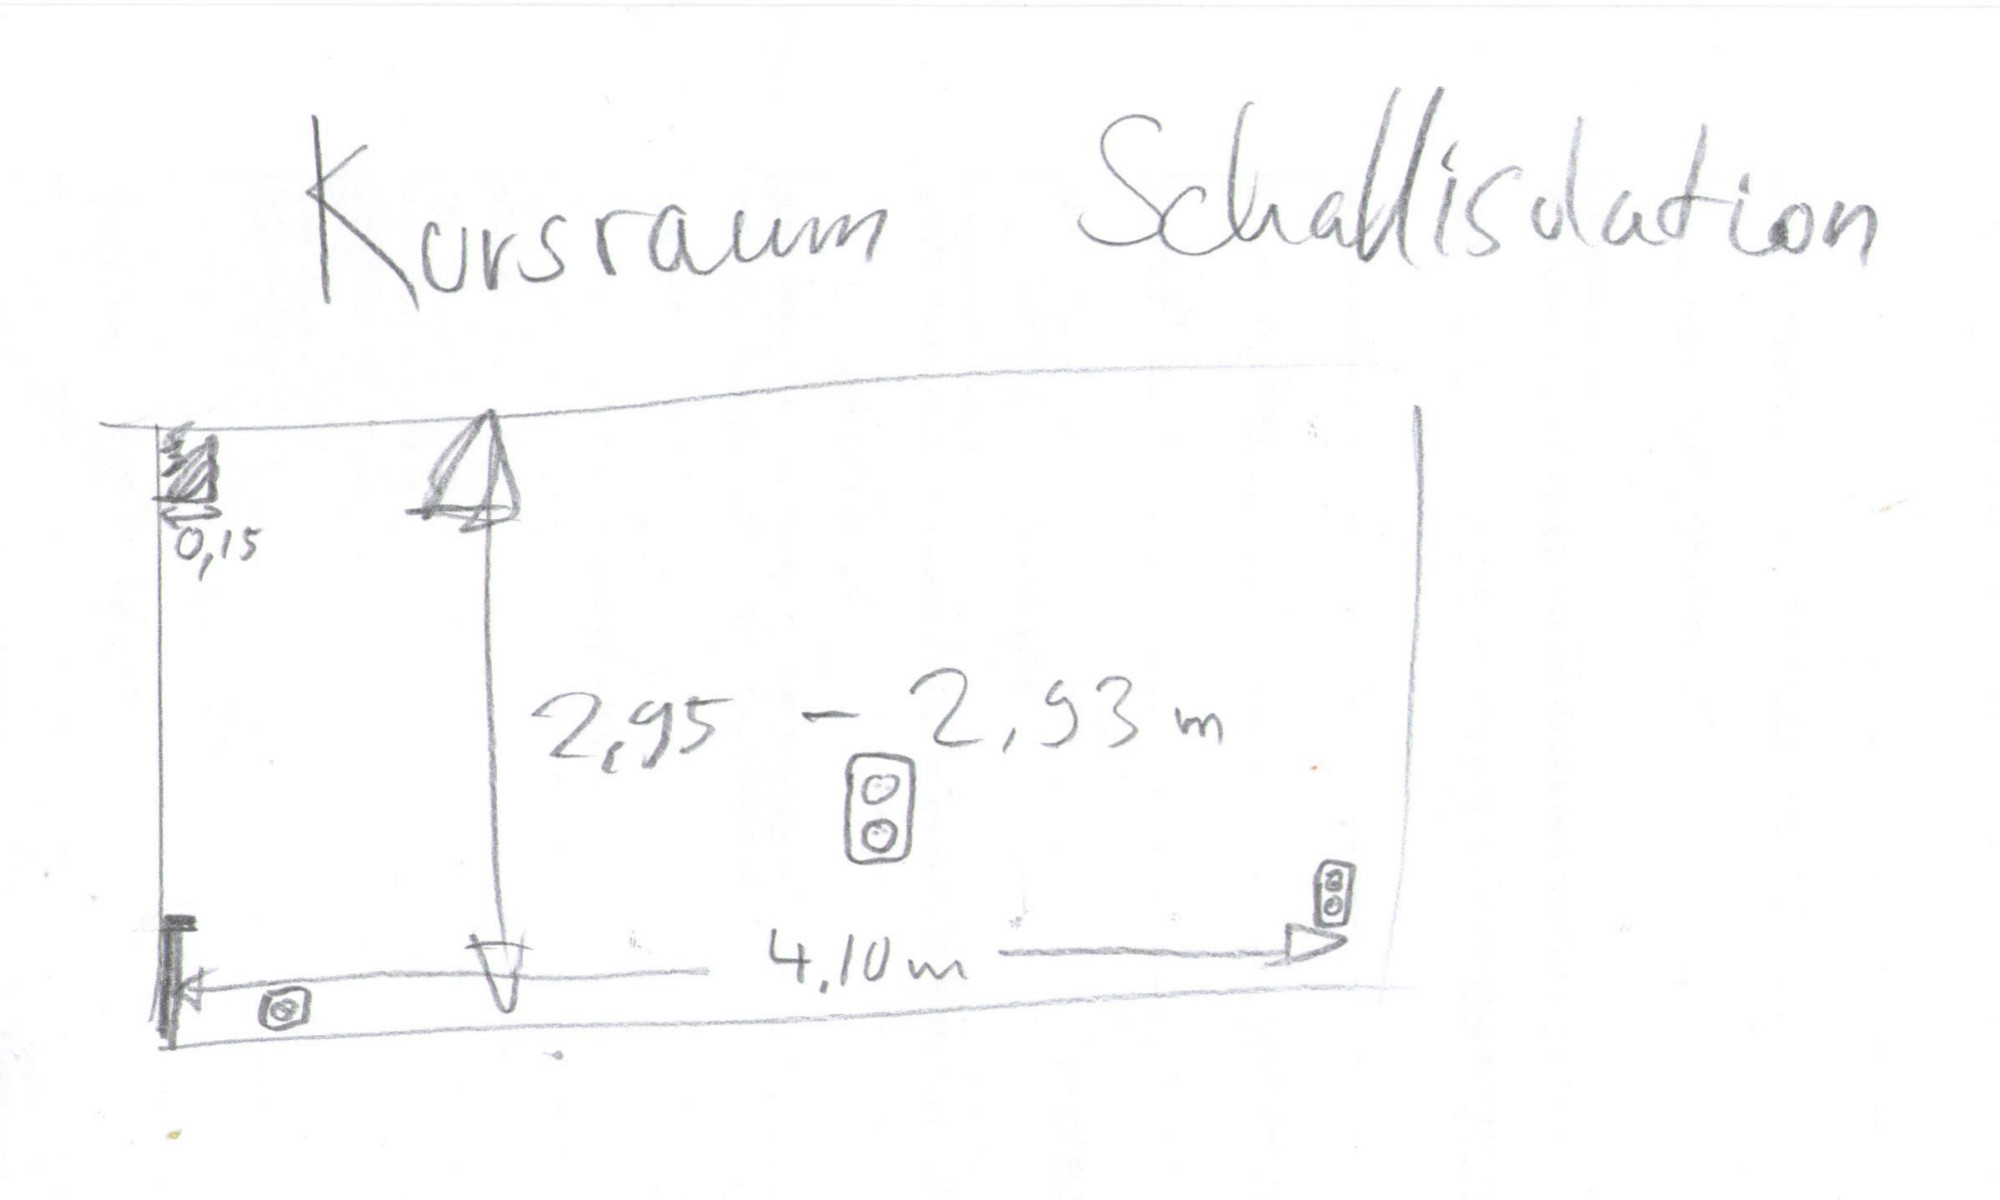 Kursraum Schallisolation
0,15
2,95 – 2,93 m
4,10 m